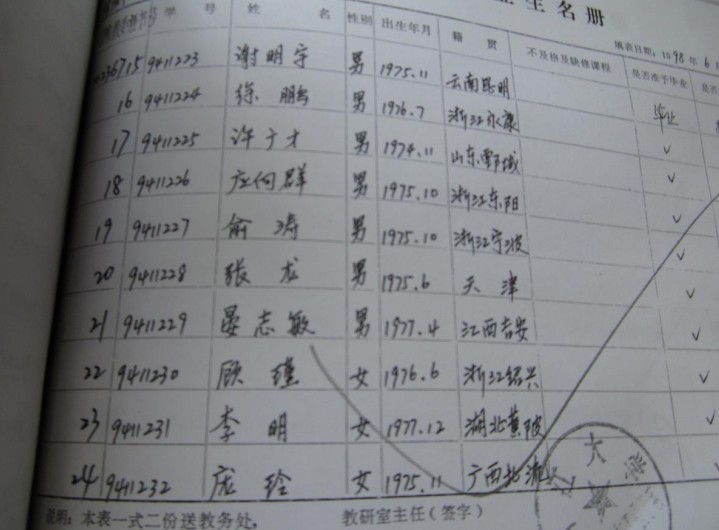 生名册
填表日期：1998年6月
学号 姓名 性别 出生年月 籍贯 不及格及缺修课程 是否准予毕业
15 9411223 谢明宇 男 1975.11 云南昆明 毕业
16 9411224 徐鹏 男 1976.7 浙江永康 √
17 9411225 许于才 男 1974.11 山东鄄城 √
18 9411226 应向群 男 1975.10 浙江东阳 √
19 9411227 俞涛 男 1975.10 浙江宁波 √
20 9411228 张龙 男 1975.6 天津 √
21 9411229 晏志敏 男 1977.4 江西吉安 √
22 9411230 顾瑾 女 1976.6 浙江绍兴 √
23 9411231 李明 女 1977.12 湖北黄陂 √
24 9411232 庞玲 女 1975.11 广西北流
大学
说明：本表一式二份送教务处。 教研室主任（签字）